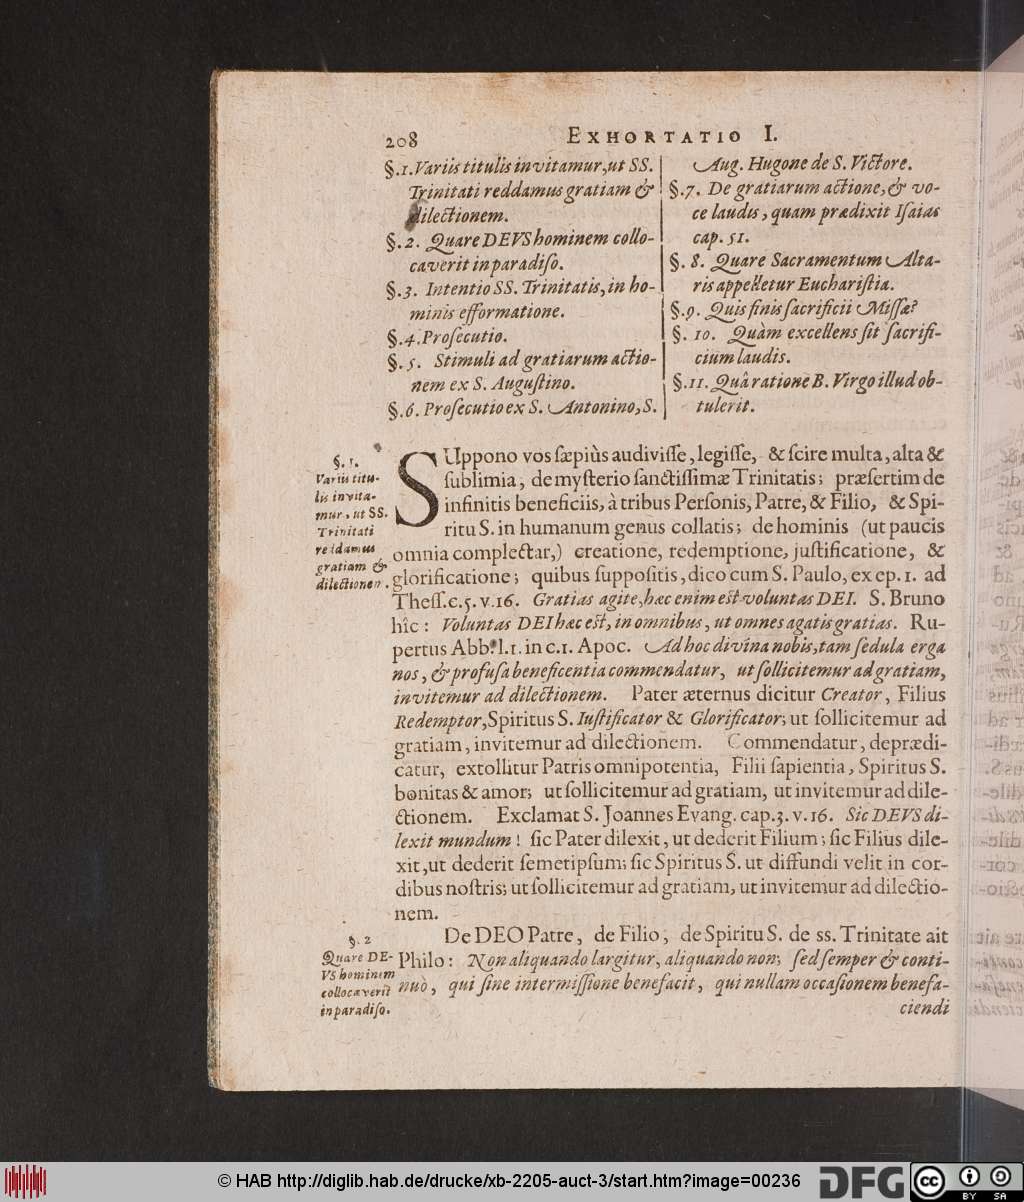 208 EXHORTATIO I.
§.1. Variis titulis invitamur, ut SS.
Trinitati reddamus gratiam &
dilectionem.
§.2. Quare DEVS hominem collo-
caverit in paradiſo.
§.3. Intentio SS. Trinitatis, in ho-
minis efformatione.
§.4. Proſecutio.
§.5. Stimuli ad gratiarum actio-
nem ex S. Auguſtino.
§.6. Proſecutio ex S. Antonino, S.
Aug. Hugone de S. Victore.
§.7. De gratiarum actione, & vo-
ce laudis, quam prædixit Iſaias
cap. 51.
§.8. Quare Sacramentum Alta-
ris appelletur Euchariſtia.
§.9. Quis finis ſacrificii Miſſæ?
§.10. Quàm excellens ſit ſacrifi-
cium laudis.
§.11. Quâ ratione B. Virgo illud ob-
tulerit.
§. 1.
Variis titu-
lis invita-
mur, ut SS.
Trinitati
reddamus
gratiam &
dilectionem.
SUppono vos ſæpiùs audiviſſe, legiſſe, & ſcire multa, alta &
ſublimia, de myſterio ſanctiſſimæ Trinitatis; præſertim de
infinitis beneficiis, à tribus Perſonis, Patre, & Filio, & Spi-
ritu S. in humanum genus collatis; de hominis (ut paucis
omnia complectar,) creatione, redemptione, juſtificatione, &
glorificatione; quibus ſuppoſitis, dico cum S. Paulo, ex ep. 1. ad
Theſſ. c. 5. v. 16. Gratias agite, hæc enim eſt voluntas DEI. S. Bruno
hîc: Voluntas DEI hæc eſt, in omnibus, ut omnes agatis gratias. Ru-
pertus Abb. l. 1. in c. 1. Apoc. Ad hoc divina nobis, tam ſedula erga
nos, & profuſa beneficentia commendatur, ut ſollicitemur ad gratiam,
invitemur ad dilectionem. Pater æternus dicitur Creator, Filius
Redemptor, Spiritus S. Iuſtificator & Glorificator; ut ſollicitemur ad
gratiam, invitemur ad dilectionem. Commendatur, deprædi-
catur, extollitur Patris omnipotentia, Filii ſapientia, Spiritus S.
bonitas & amor; ut ſollicitemur ad gratiam, ut invitemur ad dile-
ctionem. Exclamat S. Joannes Evang. cap. 3. v. 16. Sic DEVS di-
lexit mundum! ſic Pater dilexit, ut dederit Filium; ſic Filius dile-
xit, ut dederit ſemetipſum; ſic Spiritus S. ut diffundi velit in cor-
dibus noſtris; ut ſollicitemur ad gratiam, ut invitemur ad dilectio-
nem.
§. 2
Quare DE-
VS hominem
collocaverit
in paradiſo.
De DEO Patre, de Filio, de Spiritu S. de ss. Trinitate ait
Philo: Non aliquando largitur, aliquando non; ſed ſemper & conti-
nuò, qui ſine intermiſſione benefacit, qui nullam occaſionem benefa-
ciendi
© HAB http://diglib.hab.de/drucke/xb-2205-auct-3/start.htm?image=00236
DFG
cc
BY SA